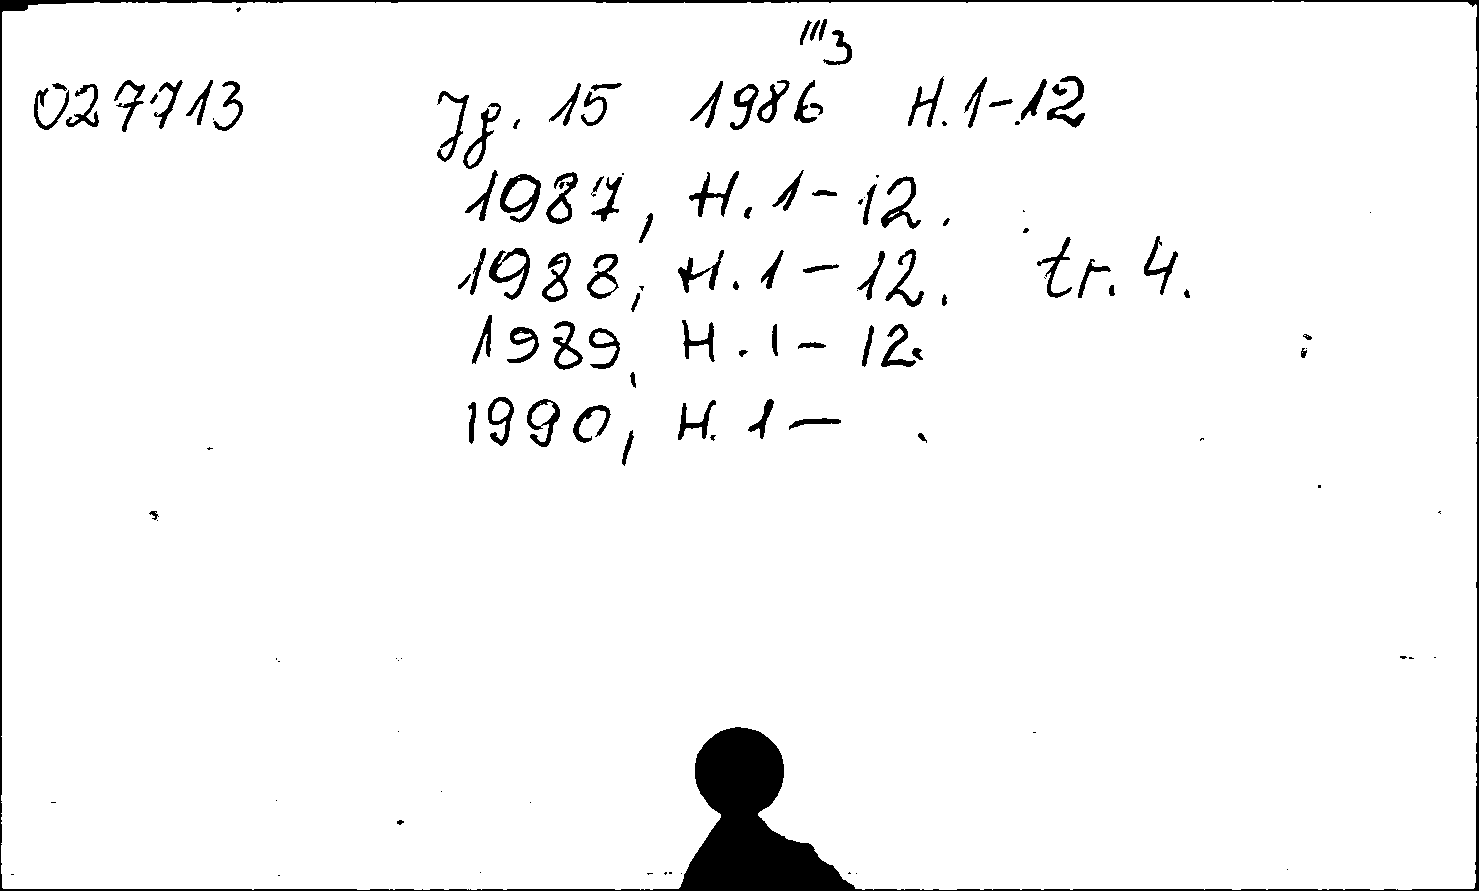 III3
027713 Jg. 15 1986 H. 1-12
1987, H. 1- 12.
1988, H. 1 - 12. tr. 4.
1989, H. 1 - 12.
1990, H. 1 -